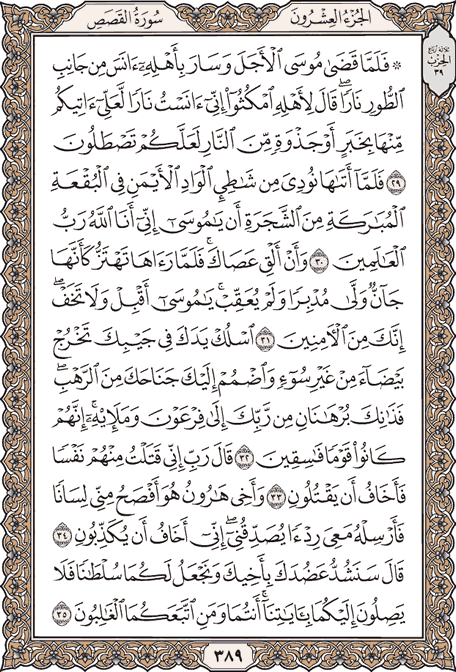 الجزء العشرون
سورة القصص
ثلاثة أرباع
الحزب
٣٩
۞ فَلَمَّا قَضَىٰ مُوسَى ٱلْأَجَلَ وَسَارَ بِأَهْلِهِۦٓ ءَانَسَ مِن جَانِبِ
ٱلطُّورِ نَارًۭاۖ قَالَ لِأَهْلِهِ ٱمْكُثُوٓا۟ إِنِّىٓ ءَانَسْتُ نَارًۭا لَّعَلِّىٓ ءَاتِيكُم
مِّنْهَا بِخَبَرٍ أَوْ جَذْوَةٍۢ مِّنَ ٱلنَّارِ لَعَلَّكُمْ تَصْطَلُونَ
٢٩ فَلَمَّآ أَتَىٰهَا نُودِىَ مِن شَـٰطِئِ ٱلْوَادِ ٱلْأَيْمَنِ فِى ٱلْبُقْعَةِ
ٱلْمُبَـٰرَكَةِ مِنَ ٱلشَّجَرَةِ أَن يَـٰمُوسَىٰٓ إِنِّىٓ أَنَا ٱللَّهُ رَبُّ
ٱلْعَـٰلَمِينَ ٣٠ وَأَنْ أَلْقِ عَصَاكَۖ فَلَمَّا رَءَاهَا تَهْتَزُّ كَأَنَّهَا
جَآنٌّۭ وَلَّىٰ مُدْبِرًۭا وَلَمْ يُعَقِّبْۚ يَـٰمُوسَىٰٓ أَقْبِلْ وَلَا تَخَفْۖ
إِنَّكَ مِنَ ٱلْـَٔامِنِينَ ٣١ ٱسْلُكْ يَدَكَ فِى جَيْبِكَ تَخْرُجْ
بَيْضَآءَ مِنْ غَيْرِ سُوٓءٍۢ وَٱضْمُمْ إِلَيْكَ جَنَاحَكَ مِنَ ٱلرَّهْبِۖ
فَذَٰنِكَ بُرْهَـٰنَانِ مِن رَّبِّكَ إِلَىٰ فِرْعَوْنَ وَمَلَإِي۟هِۦٓۚ إِنَّهُمْ
كَانُوا۟ قَوْمًۭا فَـٰسِقِينَ ٣٢ قَالَ رَبِّ إِنِّى قَتَلْتُ مِنْهُمْ نَفْسًۭا
فَأَخَافُ أَن يَقْتُلُونِ ٣٣ وَأَخِى هَـٰرُونُ هُوَ أَفْصَحُ مِنِّى لِسَانًۭا
فَأَرْسِلْهُ مَعِىَ رِدْءًۭا يُصَدِّقُنِىٓۖ إِنِّىٓ أَخَافُ أَن يُكَذِّبُونِ ٣٤
قَالَ سَنَشُدُّ عَضُدَكَ بِأَخِيكَ وَنَجْعَلُ لَكُمَا سُلْطَـٰنًۭا فَلَا
يَصِلُونَ إِلَيْكُمَا بِـَٔايَـٰتِنَآۚ أَنتُمَا وَمَنِ ٱتَّبَعَكُمَا ٱلْغَـٰلِبُونَ ٣٥
٣٨٩